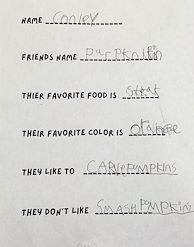 NAME Conley
FRIENDS NAME
THIER FAVORITE FOOD IS Steat
THEIR FAVORITE COLOR IS orange
THEY LIKE TO CARVE PUMPKINS
THEY DON'T LIKE SMASH PUMPKINS